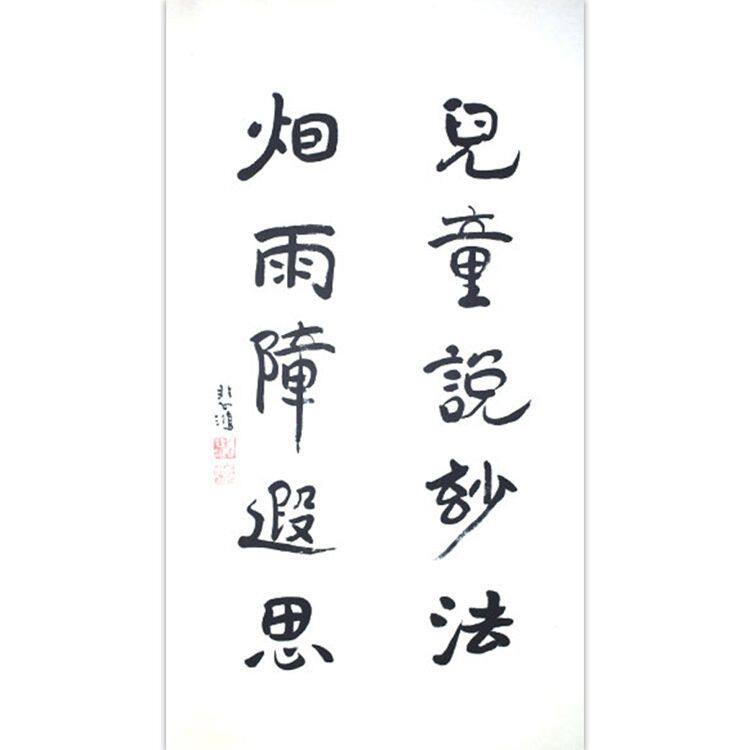 兒童説玅法
烟雨障遐思
悲鴻